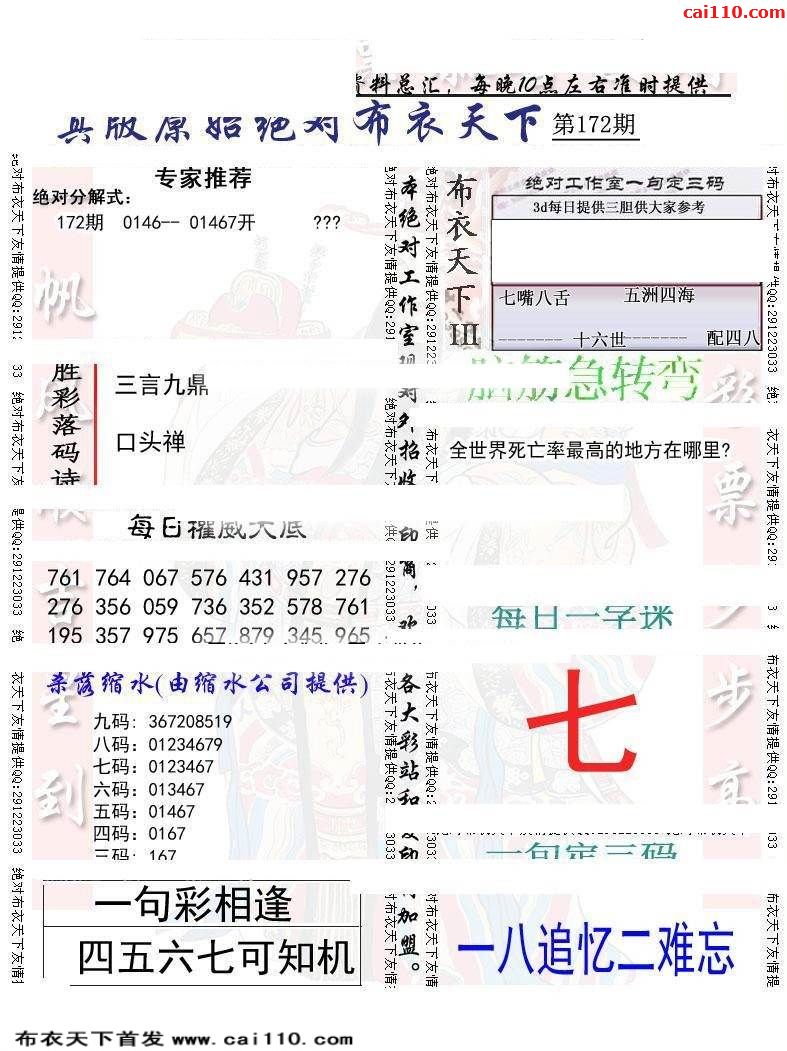 cai110.com
资料总汇, 每晚10点左右准时提供
真版原始绝对布衣天下 第172期
专家推荐
绝对分解式:
172期 0146-- 01467开 ???
绝对工作室一句定三码
3d每日提供三胆供大家参考
布衣天下III
七嘴八舌 五洲四海
-------- 十六世------- 配四八
胜彩落码诗
三言九鼎
口头禅
脑筋急转弯
全世界死亡率最高的地方在哪里?
每日权威大底
761 764 067 576 431 957 276
276 356 059 736 352 578 761
195 357 975 657 879 345 965
每日一字谜
七
杀落缩水(由缩水公司提供)
九码: 367208519
八码: 01234679
七码: 0123467
六码: 013467
五码: 01467
四码: 0167
三码: 167
一句定三码
一句彩相逢
四五六七可知机
一八追忆二难忘
各大彩站和
加盟。
绝对布衣天下友情提供QQ:291223033
布衣天下首发 www.cai110.com